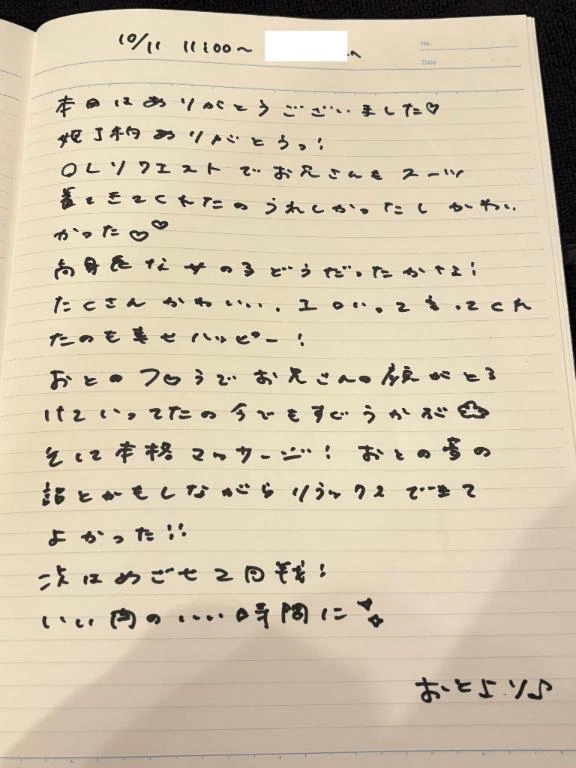 10/11 11:00～
No.
Date
本日はありがとうございました♡
姫予約ありがとうっ!
OLリクエストでお兄さんもスーツ
着てきてくれたのうれしかったしかわい
かった♡♡
高身長な女の子どうだったかなぁ!
たくさんかわいい、エロいってもってくれ
たのも幸せハッピー!
おとのフロうでお兄さんの顔がとろ
けていってたの今でもすごうかぶ
そして本格マッサージ! おとの雪の
話とかもしながらリラックスできて
よかった!!
次はめざせ2回戦!
いい肉のいい時間に
おとより♪